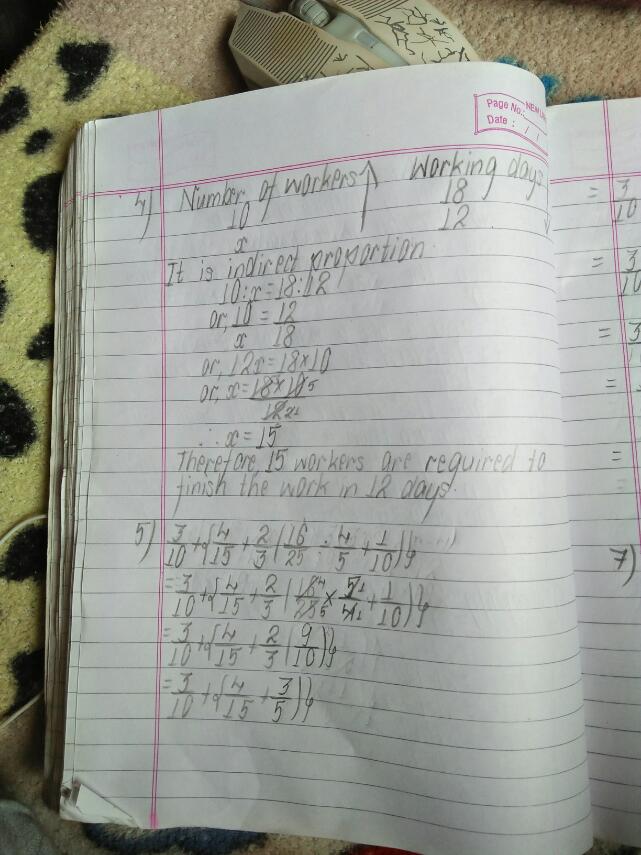 Page No.: NEW
Date : / /
4) Number of workers ↑ Working days
10 18
x 12
It is indirect proportion
10:x=18:12
or, 10/x = 12/18
or, 12x=18×10
or, x=18×10 5/12 2 1
∴ x=15
Therefore, 15 workers are required to
finish the work in 12 days.
5) 3/10+{4/15+2/3(16/25÷4/5+1/10)}
=3/10+{4/15+2/3(16 4/25 5×5 1/4 1+1/10)}
=3/10+{4/15+2/3(9/10)}
=3/10+{4/15+3/5)}
= 3/10
= 3/10
= 3
=
=
=
7)